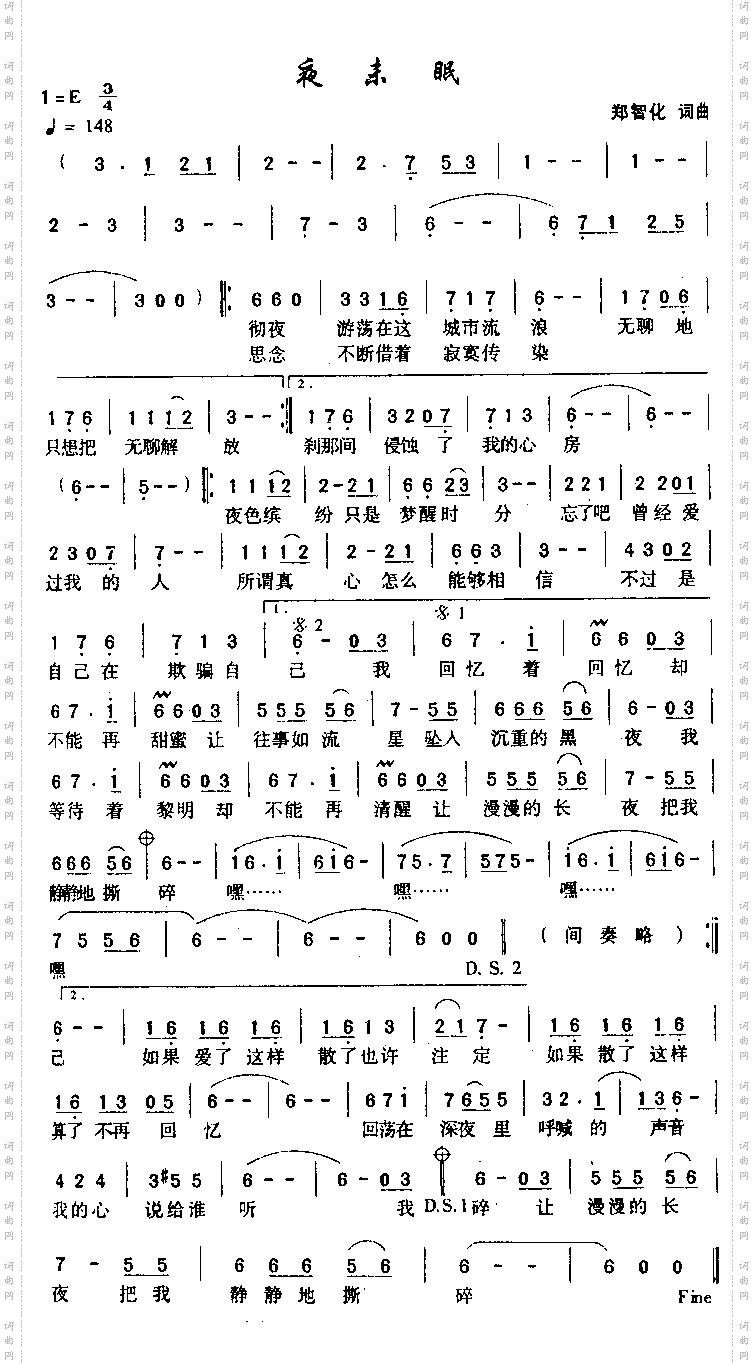 夜未眠
1=E 3/4
♩= 148
郑智化 词曲
( 3 . 1 2 1 | 2 - - | 2 . 7 5 3 | 1 - - | 1 - - |
2 - 3 | 3 - - | 7 - 3 | 6 - - | 6 7 1 2 5 |
3 - - | 3 0 0 ) |: 6 6 0 | 3 3 1 6 | 7 1 7 | 6 - - | 1 7 0 6 |
彻夜 游荡在这 城市流 浪 无聊 地
思念 不断借着 寂寞传 染
2.
1 7 6 | 1 1 1 2 | 3 - - :| 1 7 6 | 3 2 0 7 | 7 1 3 | 6 - - | 6 - - |
只想把 无聊解 放 刹那间 侵蚀 了 我的心 房
( 6 - - | 5 - - ) |: 1 1 1 2 | 2 - 2 1 | 6 6 2 3 | 3 - - | 2 2 1 | 2 2 0 1 |
夜色缤 纷 只是 梦醒时 分 忘了吧 曾经 爱
2 3 0 7 | 7 - - | 1 1 1 2 | 2 - 2 1 | 6 6 3 | 3 - - | 4 3 0 2 |
过我 的 人 所谓真 心 怎么 能够相 信 不过 是
1. 𝄋 2 𝄋 1
1 7 6 | 7 1 3 | 6 - 0 3 | 6 7 . i | 6 6 0 3 |
自己在 欺骗自 己 我 回忆 着 回忆 却
6 7 . i | 6 6 0 3 | 5 5 5 5 6 | 7 - 5 5 | 6 6 6 5 6 | 6 - 0 3 |
不能 再 甜蜜 让 往事如 流 星 坠人 沉重的 黑 夜 我
6 7 . i | 6 6 0 3 | 6 7 . i | 6 6 0 3 | 5 5 5 5 6 | 7 - 5 5 |
等待 着 黎明 却 不能 再 清醒 让 漫漫的 长 夜 把我
6 6 6 5 6 | 6 - - | i 6 . i | 6 i 6 - | 7 5 . 7 | 5 7 5 - | i 6 . i | 6 i 6 - |
静静地 撕 碎 嘿…… 嘿…… 嘿……
7 5 5 5 6 | 6 - - | 6 - - | 6 0 0 ‖ ( 间 奏 略 ) :|
嘿 D. S. 2
2.
6 - - | 1 6 1 6 1 6 | 1 6 1 3 | 2 1 7 - | 1 6 1 6 1 6 |
己 如果 爱了 这样 散了也许 注 定 如果 散了 这样
1 6 1 3 0 5 | 6 - - | 6 - - | 6 7 i | 7 6 5 5 | 3 2 . 1 | 1 3 6 - |
算了 不再 回 忆 回荡在 深夜 里 呼喊 的 声音
4 2 4 | 3 #5 5 | 6 - - | 6 - 0 3 | 6 - 0 3 | 5 5 5 5 6 |
我的心 说给谁 听 我 D. S. 1 碎 让 漫漫的 长
7 - 5 5 | 6 6 6 5 6 | 6 - - | 6 0 0 ‖
夜 把 我 静 静 地 撕 碎 Fine
词曲网